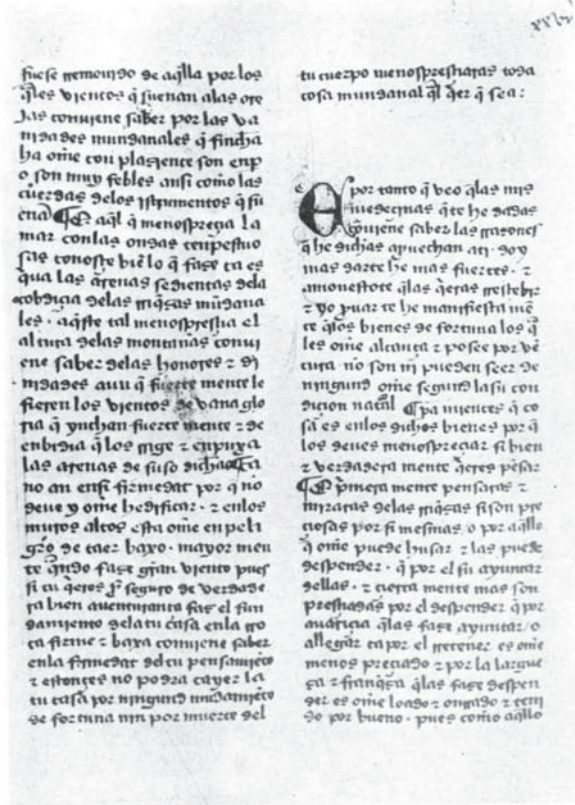 xxbij
fuese rremouido de aq̃lla por los
q̃les vientos q̃ suenan alas ore
jas conuiene saber por las va
nidades mundanales q̃ fincha
ha ome con plasiente son enp
o son muy febles ansi como las
cuerdas delos istrumentos q̃ su
ena ¶ E aq̃l q̃ menospreçia la
mar con las ondas tenpestuo
sas conosce biẽ lo q̃ fase ca es
q̃ua las arenas sedientas dela
cobdiçia delas rriq̃sas mũdana
les · aq̃ste tal menospresçia el
altura delas montañas conui
ene saber delas honores ⁊ di
nidades avn q̃ fuerte mente le
fieren los vientos de vana glo
ria q̃ ynchan fuerte mente ⁊ de
enbidia q̃ los rrige ⁊ enpuxa
las arenas de suso dichas ¶ Ca
no an en si firmedat por q̃ no
deue y ome hedificar · ⁊ en los
muros altos esta ome en peli
gro de caer baxo · mayor men
te q̃ndo fase gran viento pues
si tu q̃eres yr seguro de verdade
ra bien auenturança fas el fun
damiento dela tu casa en la rro
ca firme ⁊ baxa conuiene saber
en la firmedat del tu pensamiẽto
⁊ estonçes no podra cayer la
tu casa por ningund mudamiẽto
de fortuna nin por muerte del
tu cuerpo menospresçiaras toda
cosa mundanal q̃l q̃er q̃ sea :
E por tanto q̃ veo q̃ las mis
melesinas q̃ te he dadas
conuiene saber las rrasones
q̃ he dichas apuechan ati · doy
mas darte he mas fuertes · ⁊
amonestote q̃ las q̃eras rresçebir
⁊ yo puar te he manifiesta mẽ
te q̃ los bienes de fortuna los q̃
les ome alcança ⁊ posee por vẽ
tura no son ni pueden seer de
ningund ome segund la su con
diçion nat̃al ¶ Para mientes q̃ co
sa es en los dichos bienes por q̃
los deues menospreçiar si bien
⁊ verdadera mente q̃eres pẽsar
¶ E p̃mera mente pensaras ⁊
miraras delas rriq̃sas si son pre
çiosas por si mesmas o por aq̃llo
q̃ ome puede husar ⁊ las puede
despender · q̃ por el su ayuntar
dellas · ⁊ çierta mente mas son
presçiadas por el despender q̃ por
auariçia q̃ las fase ayuntar / o
allegar ca por el rretener es ome
menos preçiado ⁊ por la largue
ça ⁊ franq̃sa q̃ las fase despen
der es ome loado ⁊ onrado ⁊ teni
do por bueno · pues como aq̃llo